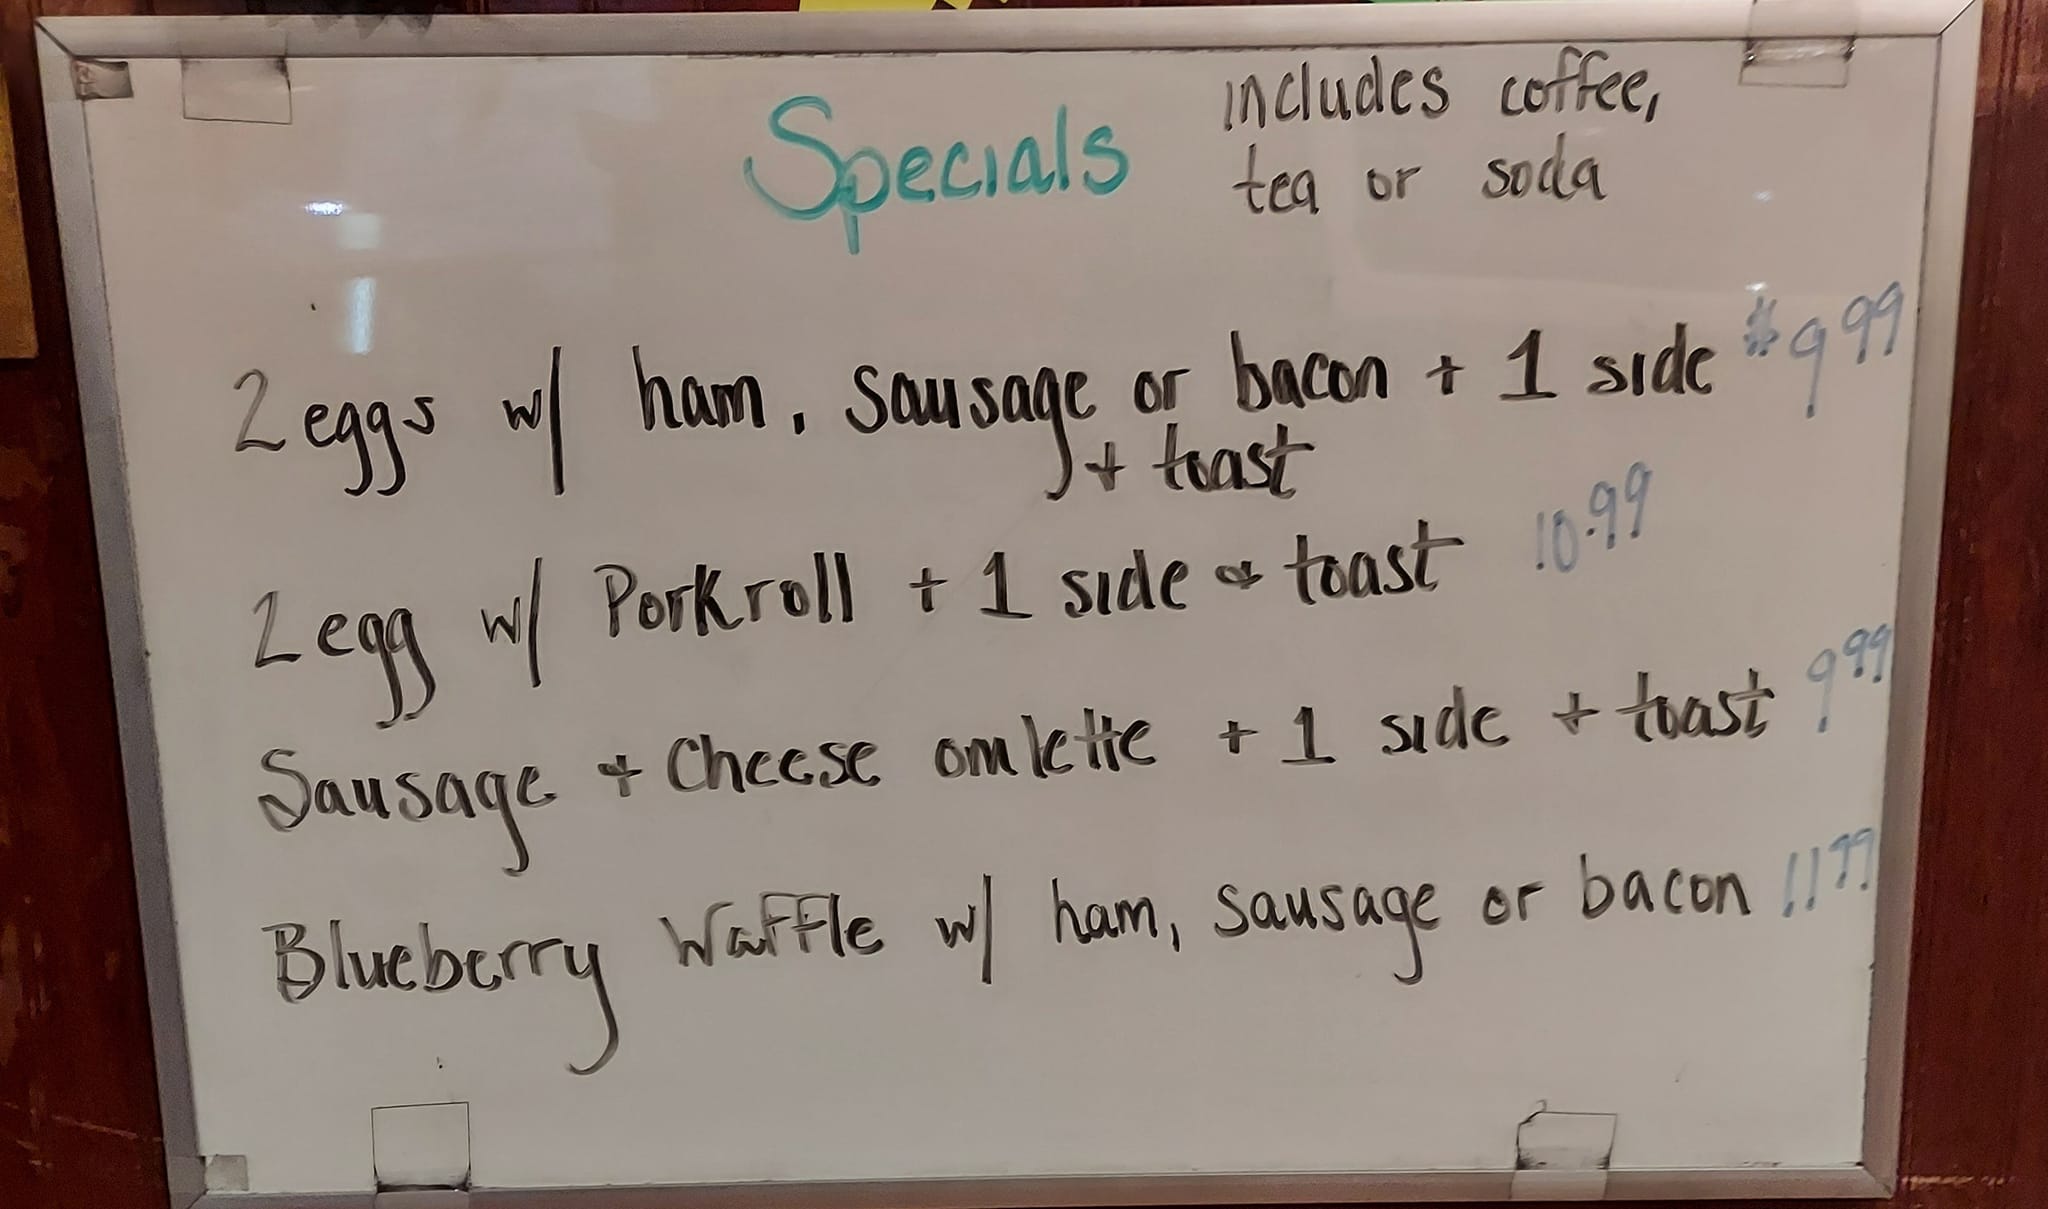 Specials includes coffee,
tea or soda
2 eggs w/ ham, sausage or bacon + 1 side $9.99
+ toast
2 egg w/ Porkroll + 1 side + toast 10.99
Sausage + Cheese omlette + 1 side + toast 9.99
Blueberry Waffle w/ ham, sausage or bacon 11.99